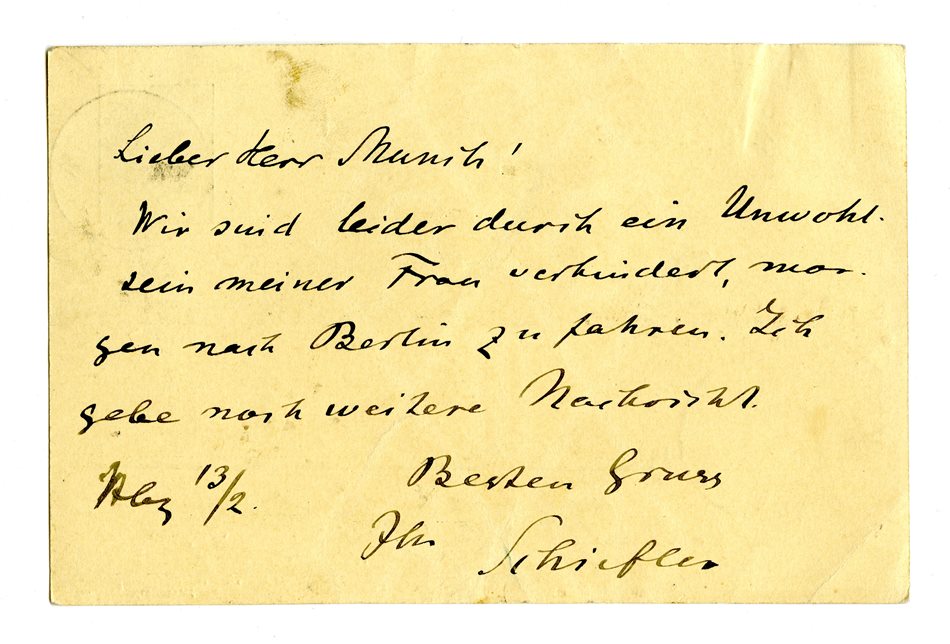 Lieber Herr Munch!
Wir sind leider durch ein Unwohl-
sein meiner Frau verhindert, mor-
gen nach Berlin zu fahren. Ich
gebe noch weitere Nachricht.
Hbg 13/2.
Besten Gruss
Ihr
Schiefler